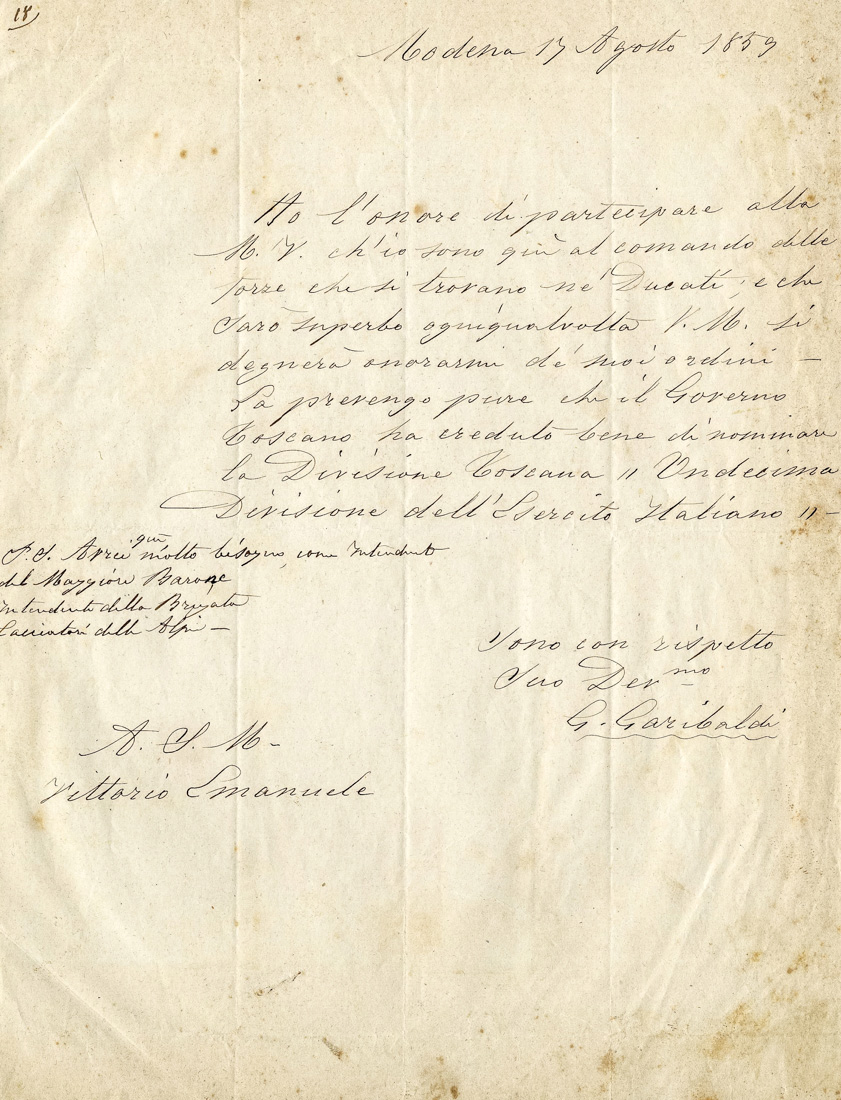 18
Modena 17 Agosto 1859
Ho l'onore di partecipare alla
M. V. ch'io sono quì al comando delle
forze che si trovano ne' Ducati; e che
sarò superbo ogniqualvolta V. M. si
degnerà onorarmi de' suoi ordini —
La prevengo pure che il Governo
Toscano ha creduto bene di nominare
la Divisione Toscana " Undecima
Divisione dell'Esercito Italiano " —
P. S. Avrei qui molto bisogno, come Intendente
del Maggiore Barone
Intendente della Brigata
Cacciatori delle Alpi —
Sono con rispetto
Suo Dev.mo
G. Garibaldi
A. S. M. -
Vittorio Emanuele